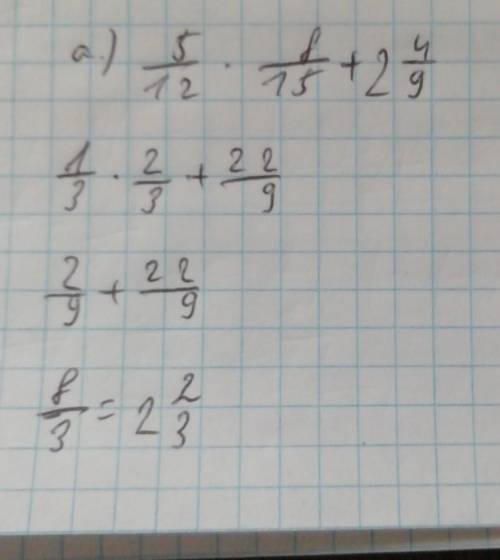 а.) 5/12 · 8/15 + 2 4/9
1/3 · 2/3 + 22/9
2/9 + 22/9
8/3 = 2 2/3